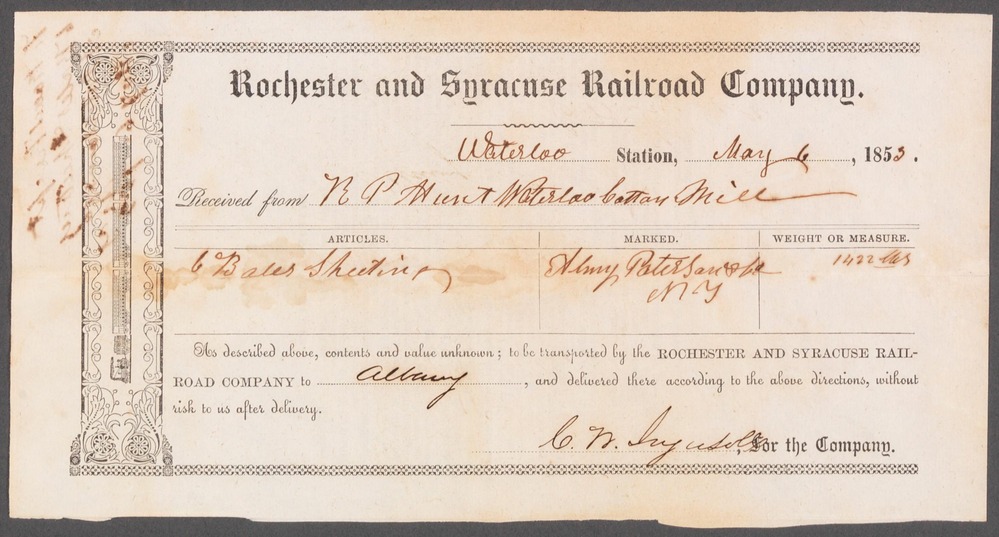 Rochester and Syracuse Railroad Company.
Waterloo Station, May 6, 1853.
Received from R P Hunt Waterloo Cotton Mill
ARTICLES. MARKED. WEIGHT OR MEASURE.
6 Bales Sheeting Almy Paterson & Co 1422 lbs
N Y
As described above, contents and value unknown; to be transported by the ROCHESTER AND SYRACUSE RAIL-
ROAD COMPANY to Albany, and delivered there according to the above directions, without
risk to us after delivery.
C. W. Ingersoll, For the Company.